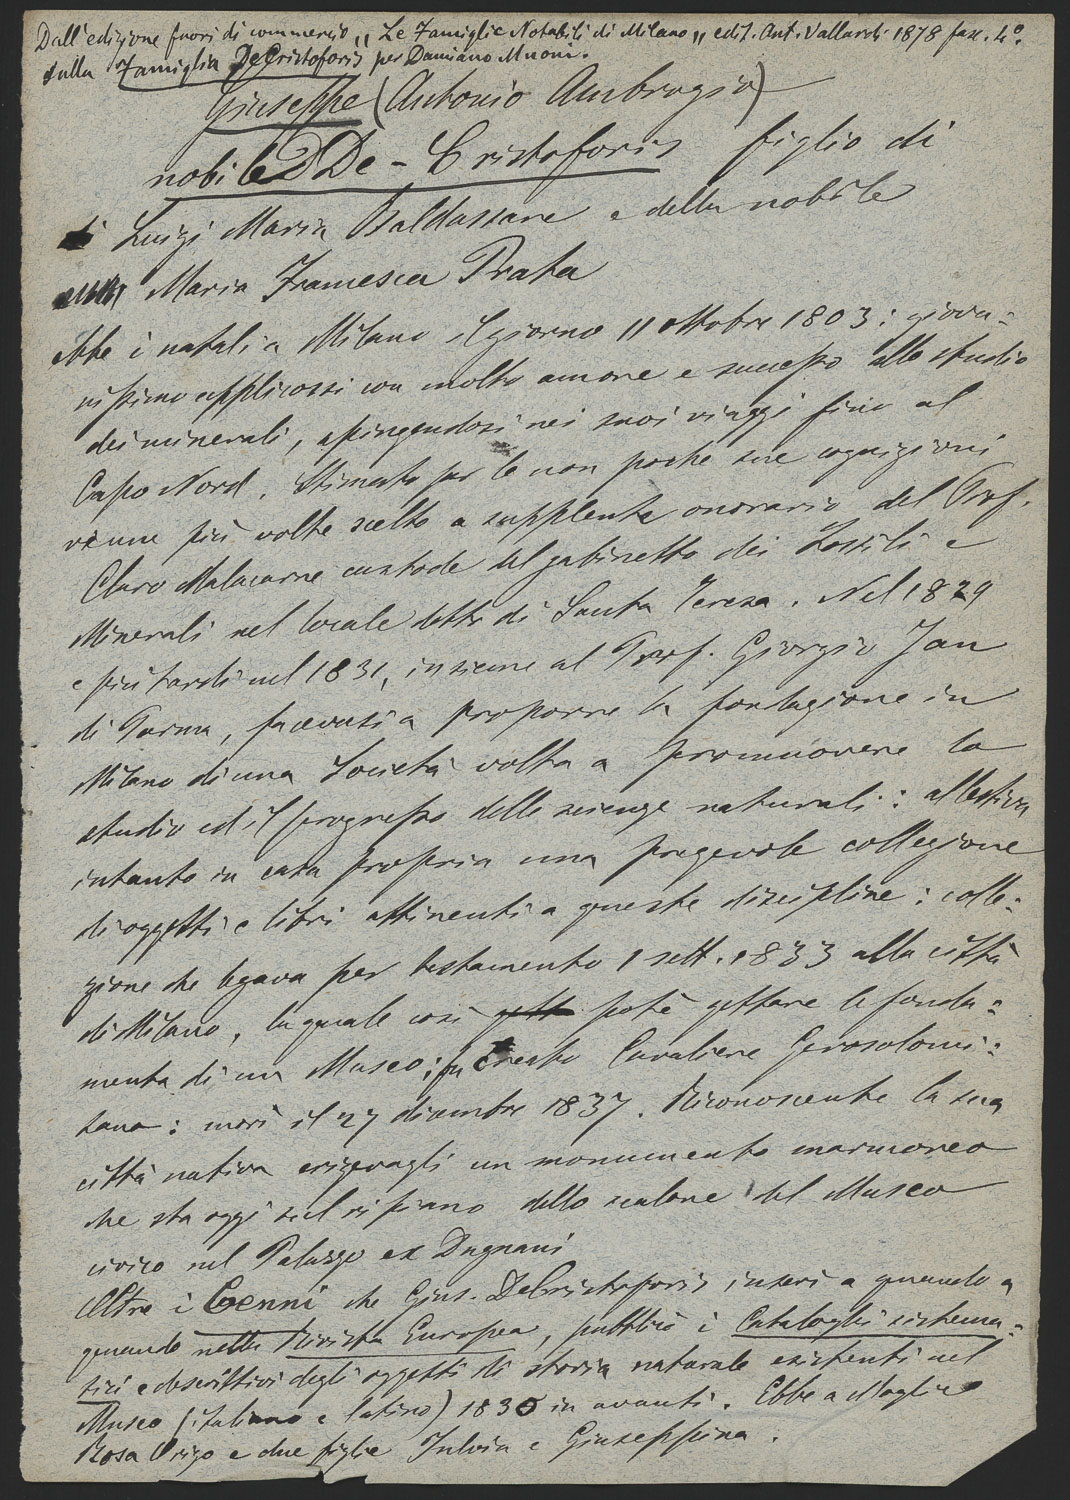 Dall'edizione fuori di commercio „Le Famiglie Notabili di Milano„ ediz. Ant. Vallardi 1878 fasc. 4º.
sulla Famiglia De Cristoforis per Damiano Muoni.
Giuseppe (Antonio Ambrogio)
nobile De-Cristoforis figlio di
Luigi Maria Baldassare e della nobile
Maria Francesca Prata
ebbe i natali a Milano il giorno 11 ottobre 1803: giova=
nissimo applicossi con molto amore e successo allo studio
dei minerali, spingendosi nei suoi viaggi fino al
Capo Nord. Stimato per le non poche sue cognizioni
venne più volte scelto a supplente onorario del Prof.
Claro Malacarne custode del gabinetto dei Fossili e
Minerali nel locale detto di Santa Teresa. Nel 1829
e più tardi nel 1831, insieme al Prof. Giorgio Jan
di Parma, facevasi a proporre la fondazione in
Milano di una Società volta a promuovere lo
studio ed il progresso delle scienze naturali: allestiva
intanto in casa propria una pregevole collezione
di oggetti e libri attinenti a queste discipline: colle=
zione che legava per testamento 1 sett. 1833 alla città
di Milano, la quale così potè gettare le fonda=
menta di un Museo: fu creato Cavaliere Gerosolomi=
tano: morì il 27 dicembre 1837. Riconoscente la sua
città nativa erigevagli un monumento marmoreo
che sta oggi sul ripiano dello scalone del Museo
civico nel Palazzo ex Dugnani
Oltre i Cenni che Gius. DeCristoforis inserì a quando a
quando nella Rivista Europea, pubblicò i Cataloghi sistema=
tici e descrittivi degli oggetti di storia naturale esistenti nel
Museo (italiano e latino) 1830 in avanti. Ebbe a Moglie
Rosa Origo e due figlie Fulvia e Giuseppina.